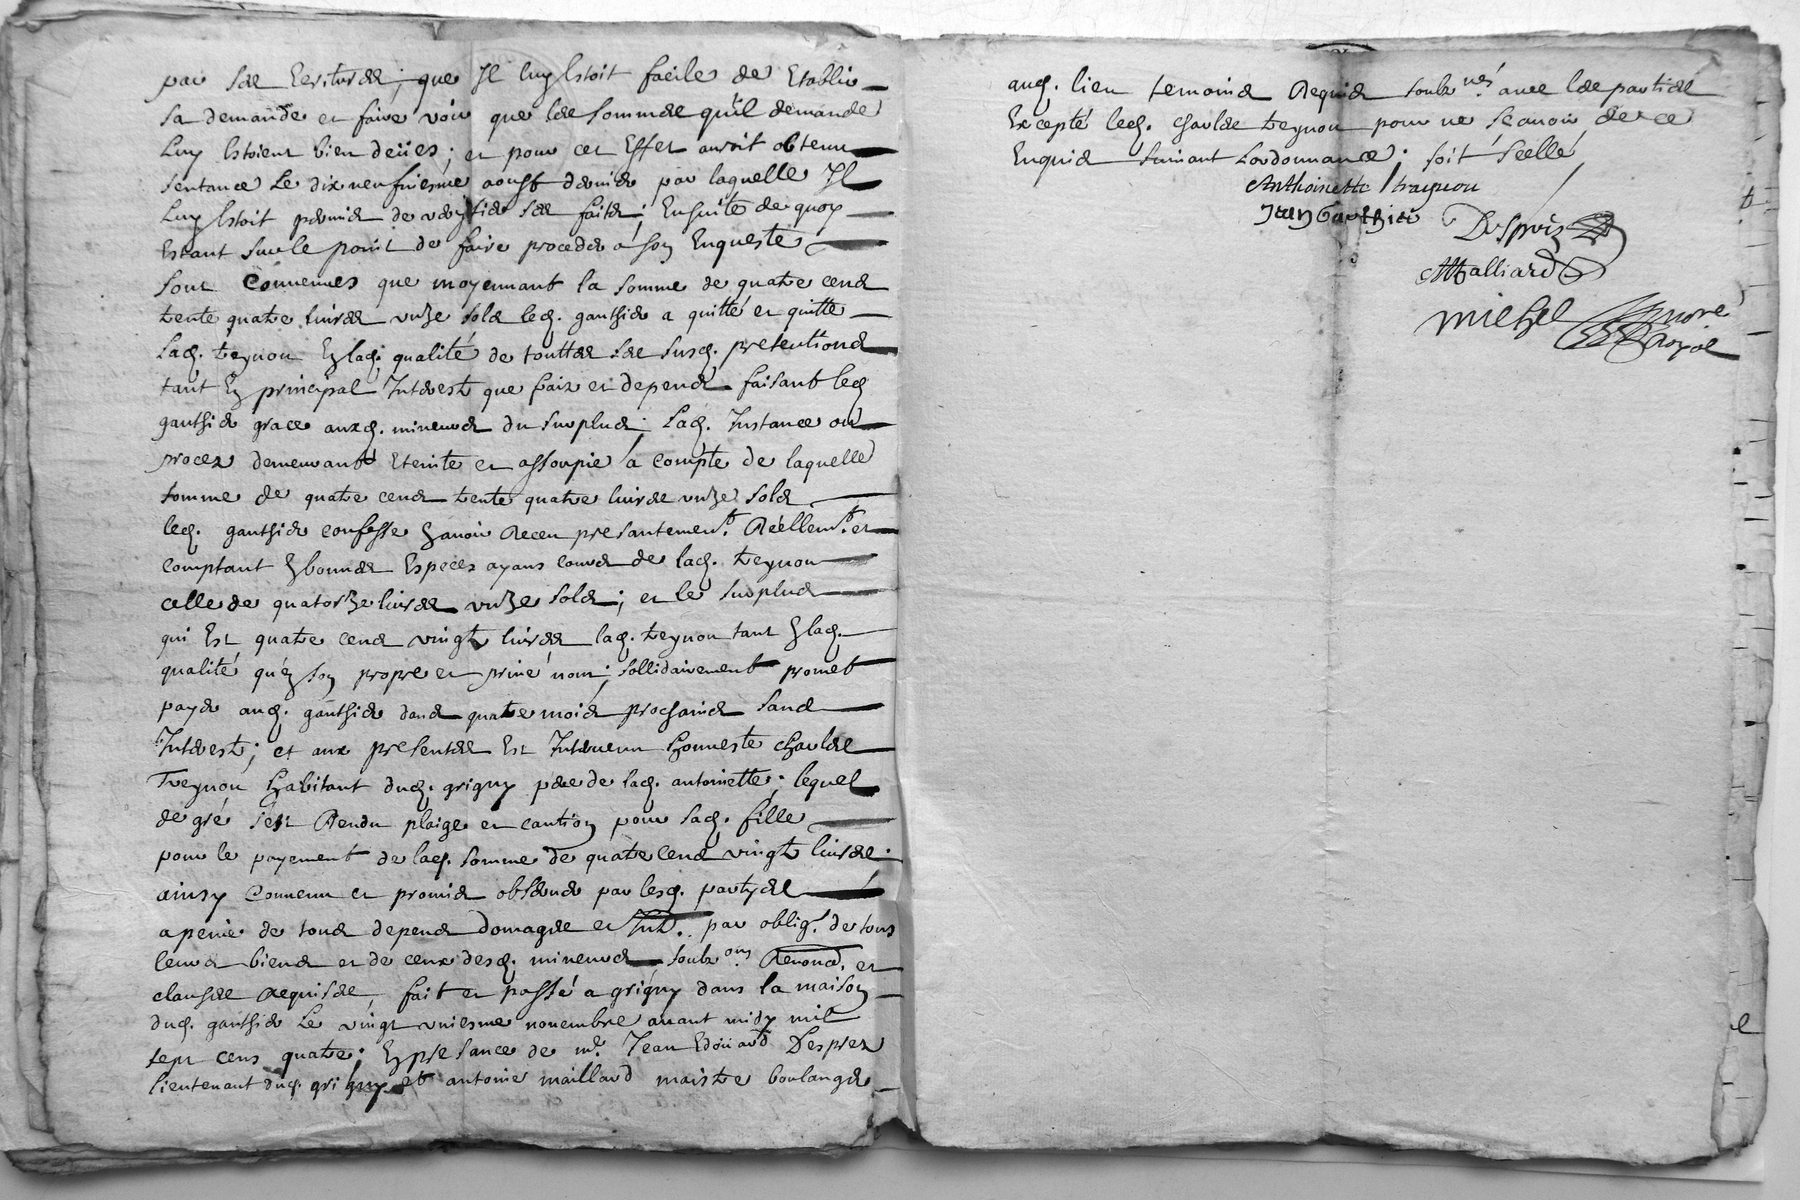 par ses Escritures; que Il luy Estoit facile de Etablir
sa demande et faire voir que les sommes qu'il demande
luy Estoient bien deües; et pour cet Effet auroit obtenu
sentance le dix neufviesme aoust dernier par laquelle Il
luy Estoit permis de verifier ses faits; Ensuite de quoy
Estant sur le point de faire proceder a son Enqueste
sont Conuenues que moyennant la somme de quatre cens
trente quatre liures unze sols led. gauthier a quitté et quitte
lad. treynon En lad. qualité de touttes ses susd. pretentions
tant En principal Interest que fraix et depens faisant led.
gauthier grace auxd. mineurs du surplus; Lad. Instance ou
procez demeurant Eteinte et assoupie a compte de laquelle
somme de quatre cens trente quatre liures unze sols
led. gauthier confesse hauoir Receu presantement. Réellemt. et
comptant En bonnes Especes ayans cours de lad. treynon
celle de quatorze liures unze sols; et le surplus
qui Est quatre cens vingt liures lad. treynon tant En lad.
qualité qu'en son propre et priué nom; sollidairement promet
payer aud. gauthier dans quatre mois prochains sans
Interest; et aux presentes Est Interuenu honneste charles
Treynon habitant dud. grigny pere de lad. antoinette; lequel
de gré s'est Rendu plaige et caution pour sad. fille
pour le payement de lad. somme de quatre cens vingt liures.
ainsy Conuenu et promis obseruer par lesd. partyes
a peine de tous depens domages et Int. par oblig. de tous
leurs biens et de ceux desd. mineurs soubz ons Renond. et
clauses Requises, fait et passé a grigny dans la maison
dud. gauthier Le vingt uniesme nouembre auant midy mil
sept cens quatre; En presance de mr. Jean Edoüard Desprez
lieutenant dud. grigny et antoine maillard maistre boulanger
aud. lieu temoins Requis soubz nés auec les parties
Excepté led. charles treynon pour ne sçauoir de ce
Enquis suiuant Lordonnance; soit scellé
Anthoinette traynon
Jean Gauthier
Desprez
Malliard
Michel
Royal